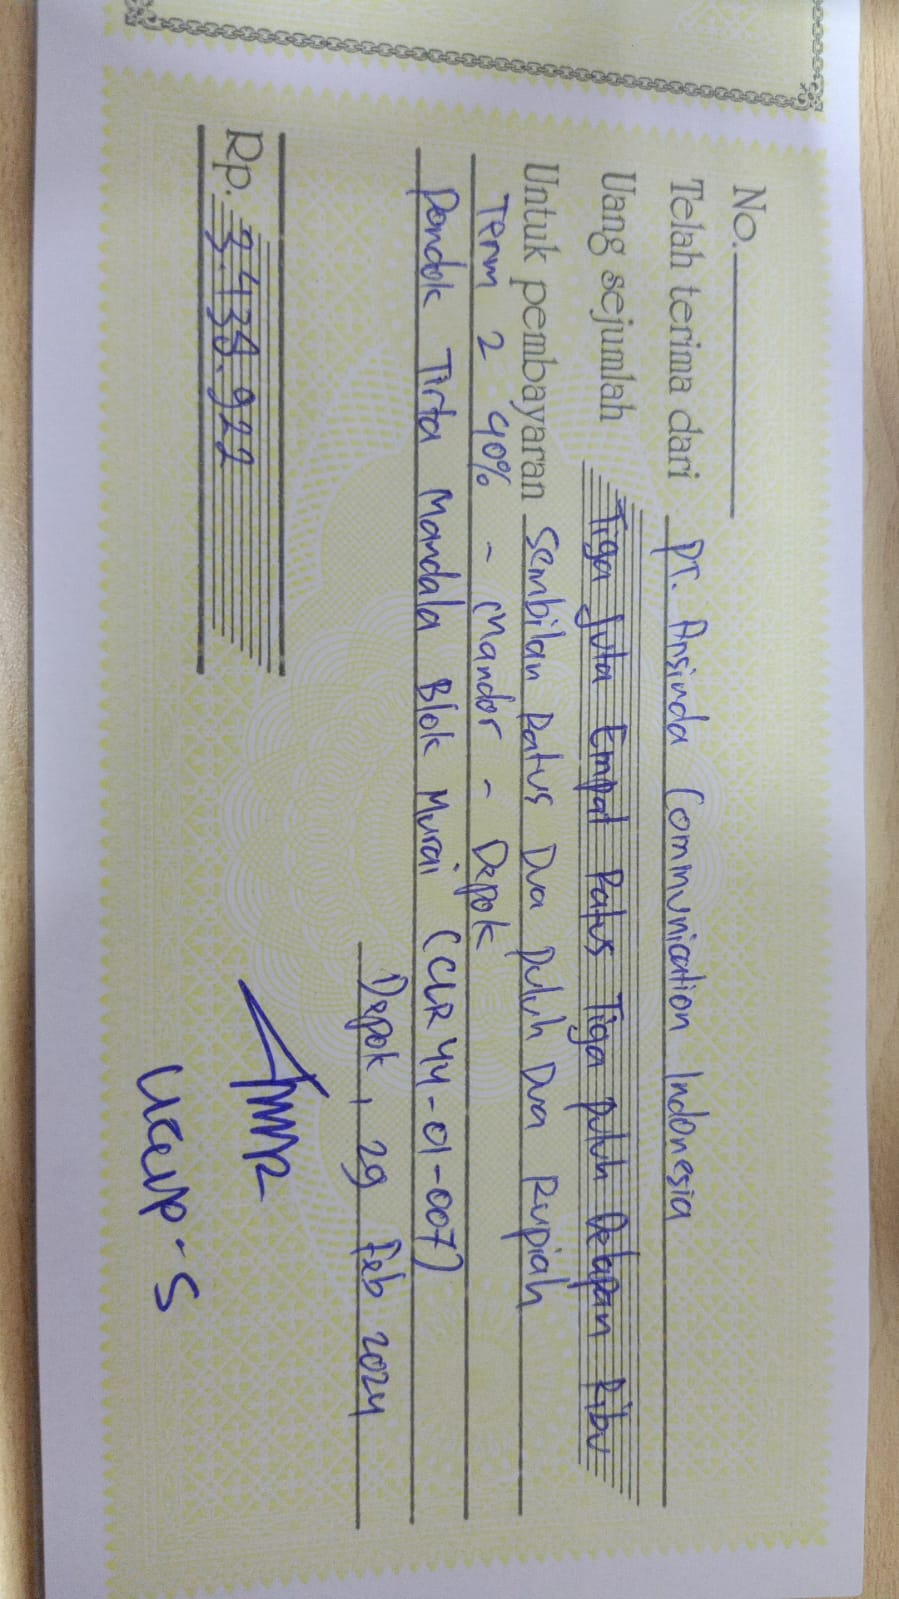 No.
Telah terima dari PT. Ansinda Communication Indonesia
Uang sejumlah Tiga Juta Empat Ratus Tiga puluh Delapan Ribu
Untuk pembayaran Sembilan Ratus Dua puluh Dua Rupiah
Term 2 40% - Mandor - Depok
Pondok Tirta Mandala Blok Murai (CLR 44-01-007)
Depok, 29 Feb 2024
Rp. 3.438.922
Ucup-S